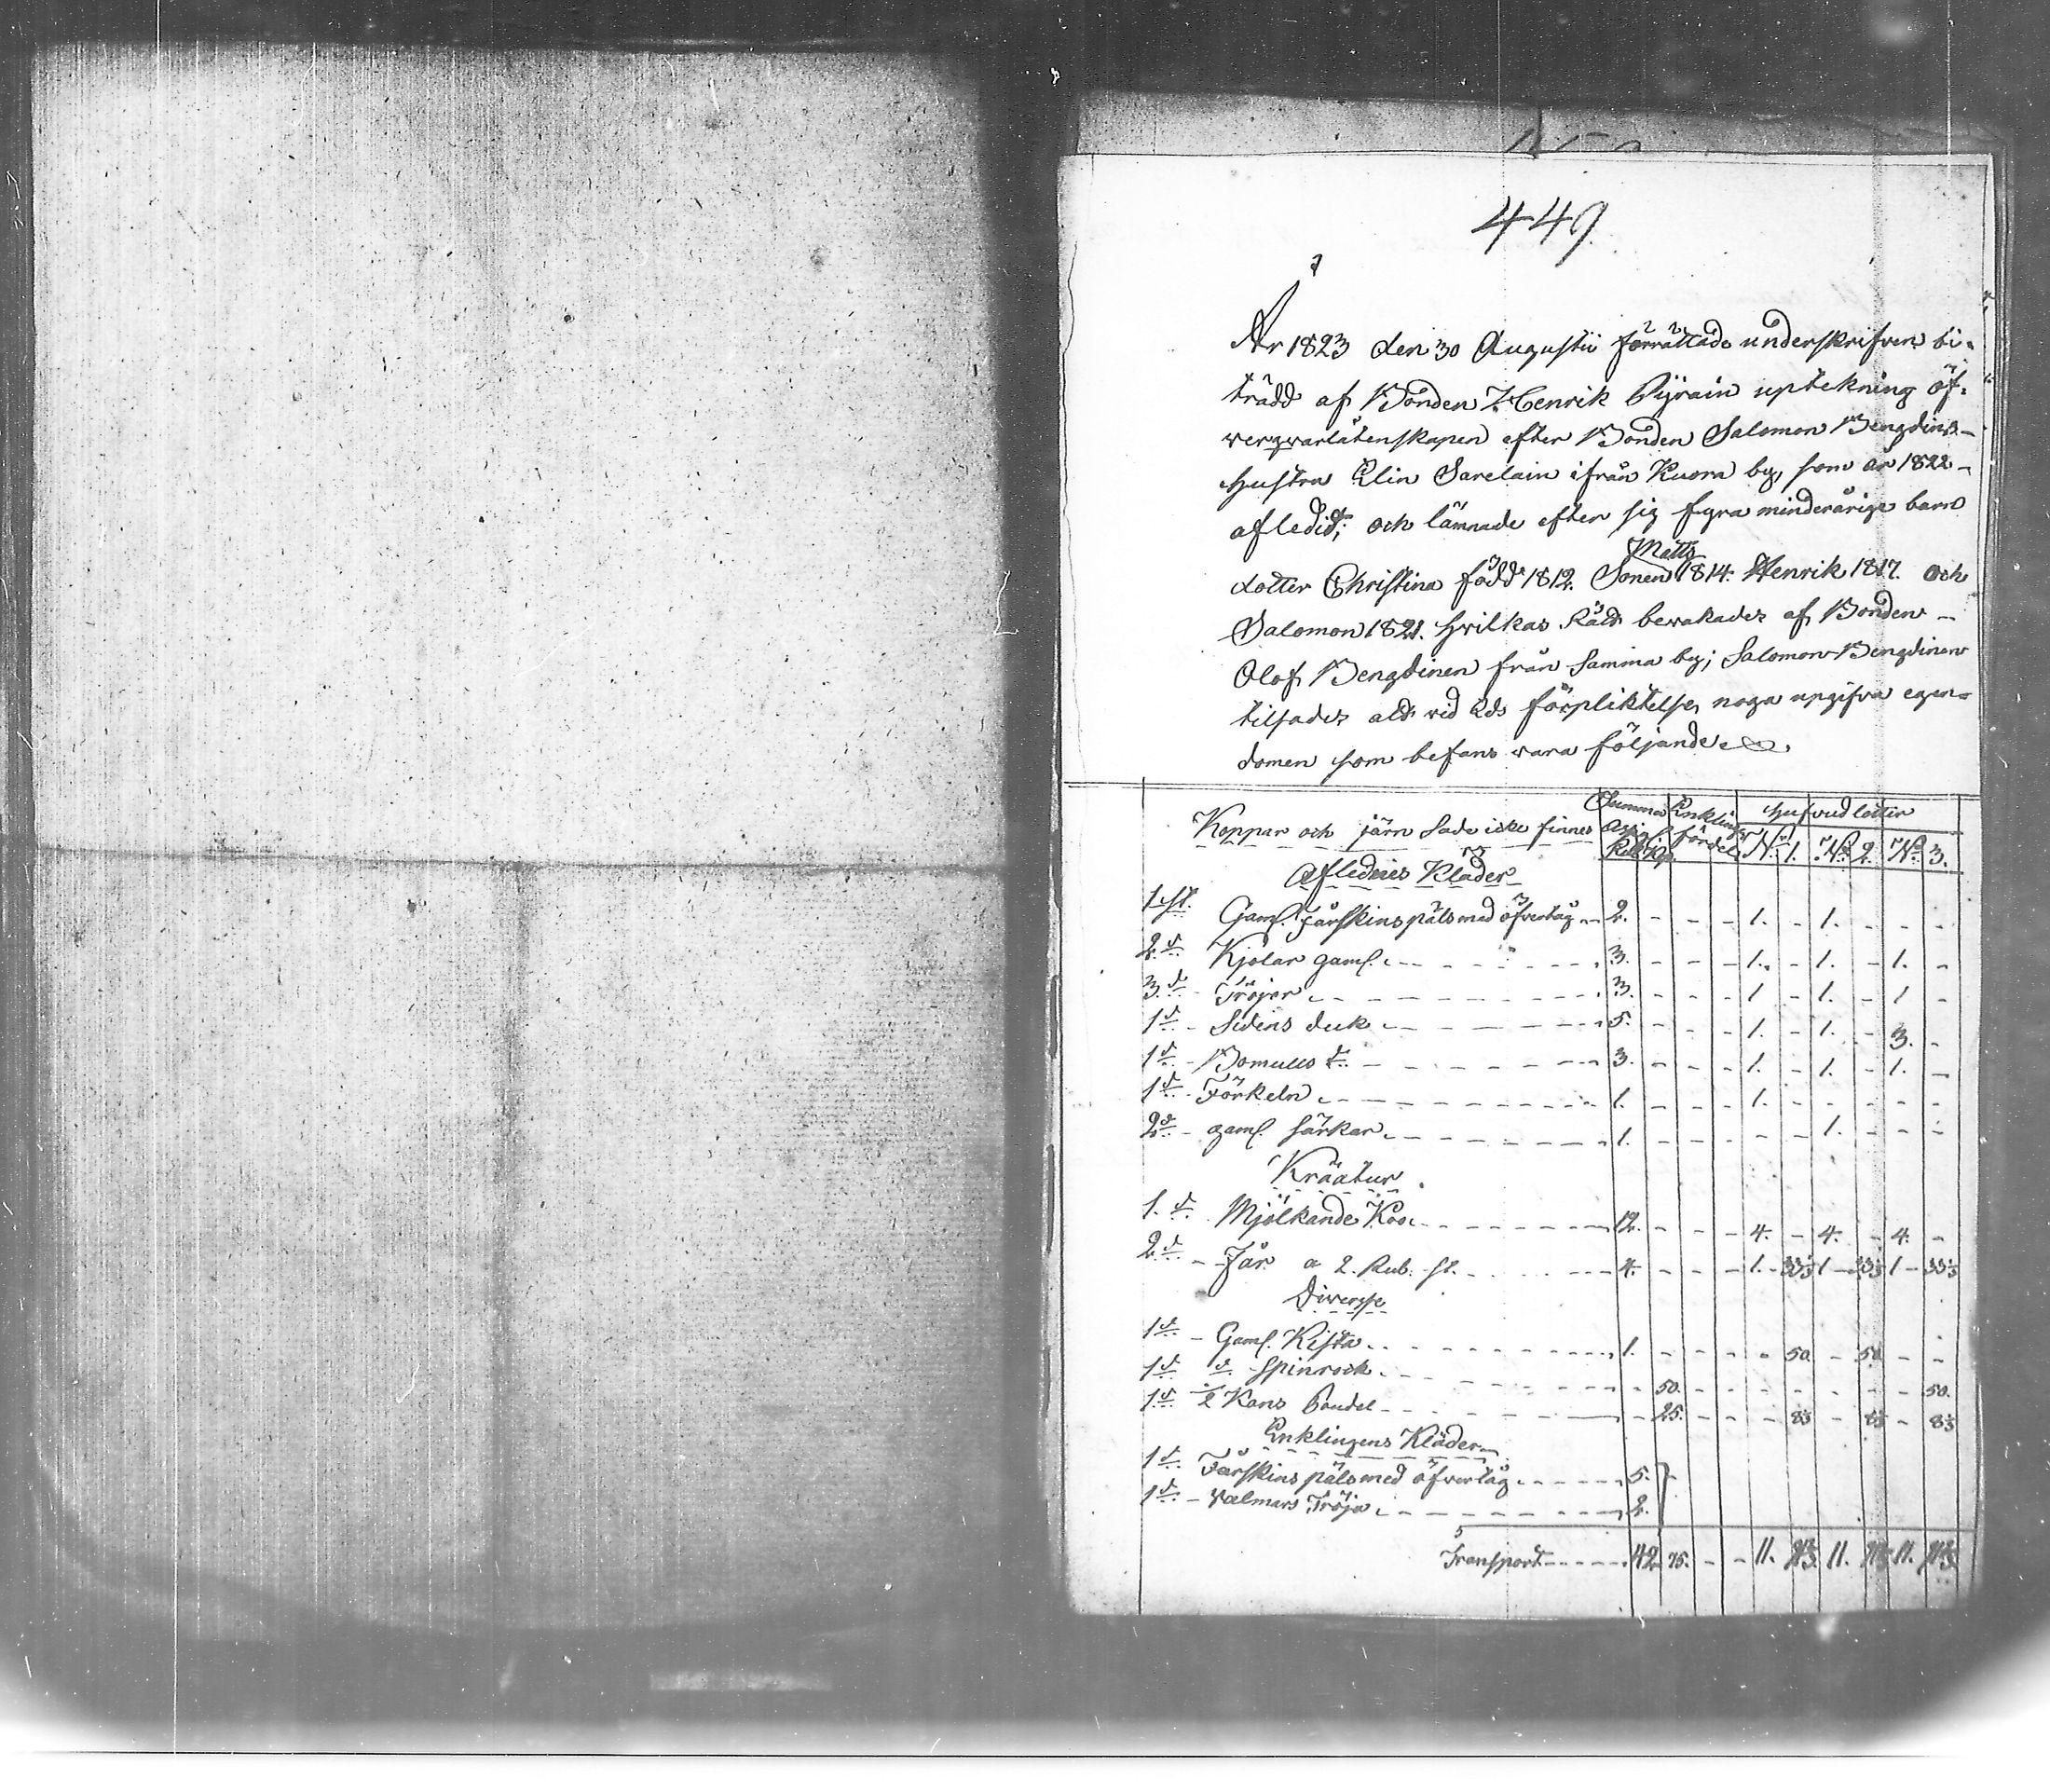 449.
År 1823 den 30 Augustii förrättade underskrifven bi-
trädd af Bonden Henrik Pyräin uptekning öf-
wer qvarlåtenskapen efter Bonden Salomon Bengdins
hustru Elin Sarelain ifrån Kuora by, som år 1822
afledit; och lämnade efter sig fyra minderårige barn
Matts
dotter Christina född 1812. Sonen 1814. Henrik 1817. och
Salomon 1821. hvilkas Rätt bevakades af Bonden
Olof Bengdinen från samma by; Salomon Bengdinen
tilsades alt vid Eds förpliktelse noga upgifva egen-
domen som befans vara följande
Koppar och järn sade icke finnes Summa Enklings fördel Hufvud lotter
Rub. Kop. No 1. No 2. No 3.
Aflednes Kläder
1 st. Gaml. Fårskins päls med öfvertåg 2. - - - 1. - 1. - - -
2 d:o Kjolar gaml. 3. - - - 1. - 1. - 1. -
3 d:o Tröjor 3. - - - 1 - 1. - 1 -
1 d:o Sidens duk 5. - - - 1. - 1. - 3. -
1 d:o Bomulls d:o 3. - - - 1. - 1. - 1. -
1 d:o Förkeln 1. - - - 1. - - - - -
2 d:o gaml. särkar 1. - - - - - 1. - - -
Kräatur
1. d:o Mjölkande Koo 12. - - - 4. - 4. - 4. -
2 d:o Får a 2. Rub. st. 4. - - - 1 - 33⅓ 1 - 33⅓ 1 - 33⅓
Diverse
1 d:o Gaml. Kista 1. - - - - 50. - 50. - -
1 d:o d:o Spinrock - 50. - - - - - - - 50.
1 d:o ½ Kans - 25. - - - 8⅓ - 8⅓ - 8⅓
Enklingens Kläder
1 d:o Fårskins päls med öfvertåg 5.
1 d:o Valmars Tröja 2.
Transport 42 75. - - 11. 11. 11.